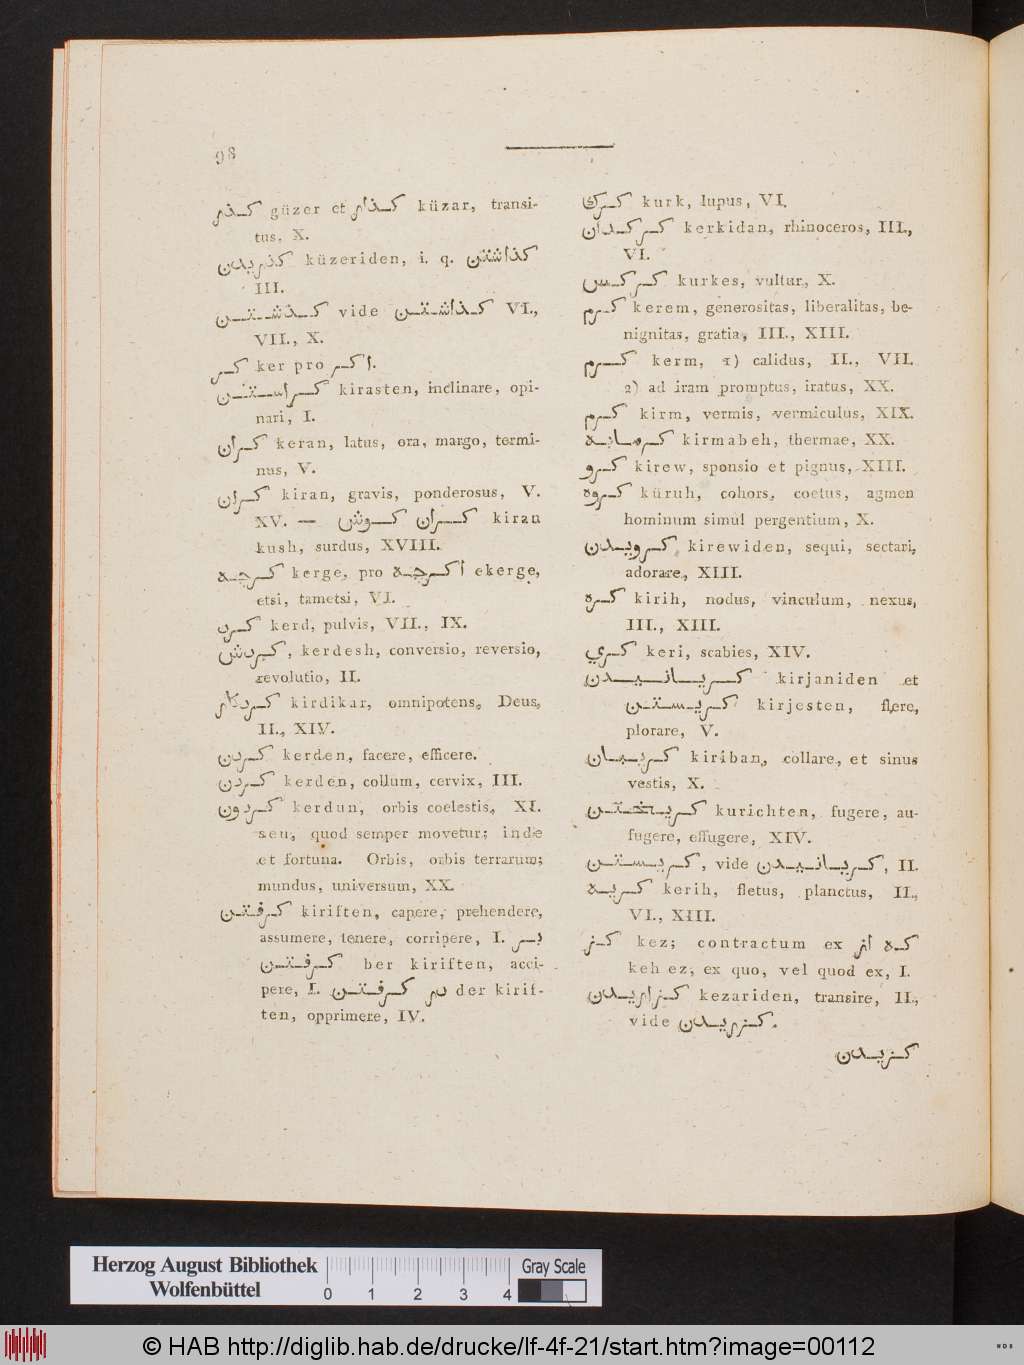 98
كذر güzer et كذار küzar, transi-
tus, X.
كذريدن küzeriden, i. q. كذاشتن
III.
كذشتن vide كذاشتن VI.,
VII., X.
كر ker pro اكر.
كراستن kirasten, inclinare, opi-
nari, I.
كران keran, latus, ora, margo, termi-
nus, V.
كران kiran, gravis, ponderosus, V.
XV. — كران كوش kiran
kush, surdus, XVIII.
كرجه kerge, pro اكرجه ekerge,
etsi, tametsi, VI.
كرد kerd, pulvis, VII., IX.
كردش, kerdesh, conversio, reversio,
revolutio, II.
كردكار kirdikar, omnipotens, Deus,
II., XIV.
كردن kerden, facere, efficere.
كردن kerden, collum, cervix, III.
كردون kerdun, orbis coelestis, XI.
seu, quod semper movetur; inde
et fortuna. Orbis, orbis terrarum;
mundus, universum, XX.
كرفتن kiriften, capere, prehendere,
assumere, tenere, corripere, I. بر
كرفتن ber kiriften, acci-
pere, I. در كرفتن der kirif-
ten, opprimere, IV.
كرك kurk, lupus, VI.
كركدان kerkidan, rhinoceros, III.,
VI.
كركس kurkes, vultur, X.
كرم kerem, generositas, liberalitas, be-
nignitas, gratia, III., XIII.
كرم kerm, 1) calidus, II., VII.
2) ad iram promptus, iratus, XX.
كرم kirm, vermis, vermiculus, XIX.
كرمابه kirmabeh, thermae, XX.
كرو kirew, sponsio et pignus, XIII.
كروه küruh, cohors, coetus, agmen
hominum simul pergentium, X.
كرويدن kirewiden, sequi, sectari,
adorare, XIII.
كره kirih, nodus, vinculum, nexus,
III., XIII.
كري keri, scabies, XIV.
كريانيدن kirjaniden et
كريستن kirjesten, flere,
plorare, V.
كريبان kiriban, collare, et sinus
vestis, X.
كريختن kurichten, fugere, au-
fugere, effugere, XIV.
كريستن, vide كريانيدن, II.
كريه kerih, fletus, planctus, II.,
VI., XIII.
كز kez; contractum ex كه از
keh ez, ex quo, vel quod ex, I.
كزاريدن kezariden, transire, II.,
vide كزريدن.
كزيدن
Herzog August Bibliothek
Wolfenbüttel
0 1 2 3 4
Gray Scale
© HAB http://diglib.hab.de/drucke/lf-4f-21/start.htm?image=00112